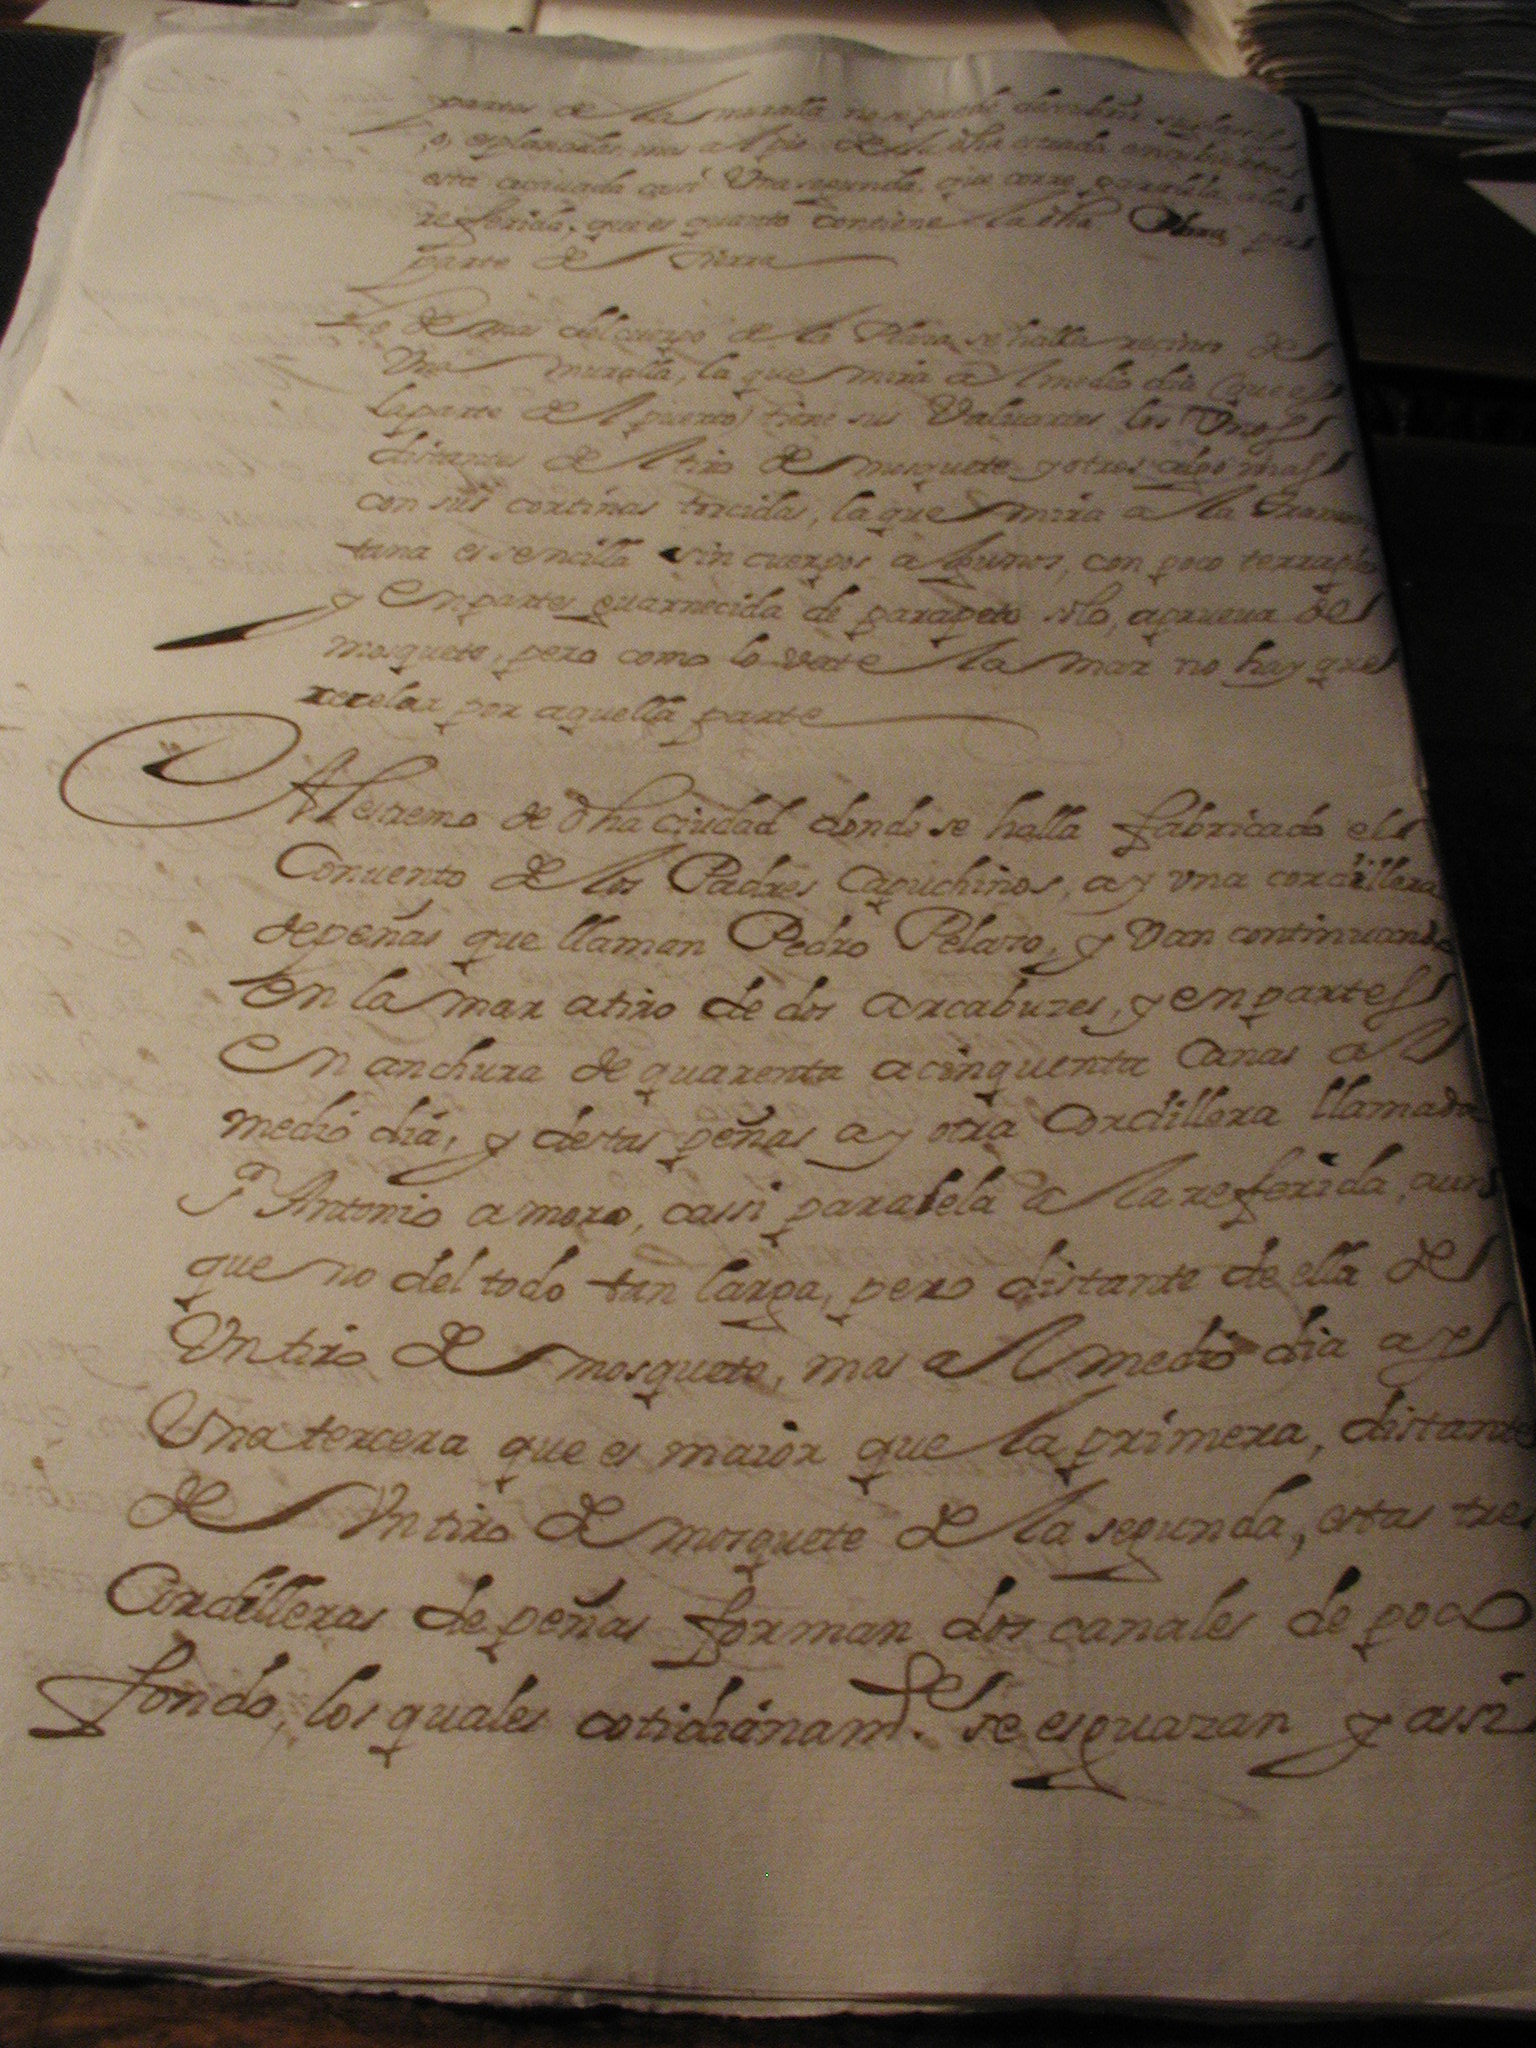 partes de la muralla no se puede
o, esplanadas, mas al pie de la dha estrada encubierta
esta casi Una segunda, que corre paralela a la
referida, que es quanto contiene la dha Plaza por
parte de Tierra
Lo demas del cuerpo de la Plaza se halla recinto de
Una muralla, la que mira al medio dia (que es
la parte del puerto) tiene sus Valuartes los Unos
distantes del tiro de mosquete y otros algo mas
con sus cortinas torcidas, la que mira a la Tramon
tana es sencilla sin cuerpos algunos, con poco terraple
y en partes guarnecida de parapeto solo, a prueua de
mosquete, pero como lo vate la mar no hay que
rezelar por aquella parte
Al estremo de dha ciudad donde se halla fabricado el
Conuento de los Padres Capuchinos, ay vna cordillera
de peñas que llaman Pedro Pelaro, y Van continuando
en la mar a tiro de dos arcabuzes, y en partes
en anchura de quarenta a cinquenta Canas al
medio dia, y destas peñas ay otra Cordillera llamada
Sn Antonio amoro, cassi paralela a la referida, aun
que no del todo tan larga, pero distante de ella de
Un tiro de mosquete, mas al medio dia ay
Una tercera que es maior que la primera, distante
de Un tiro de mosquete de la segunda, estas tres
Cordilleras de peñas forman dos canales de poco
fondo, los quales cotidianamte se esguazan y assi